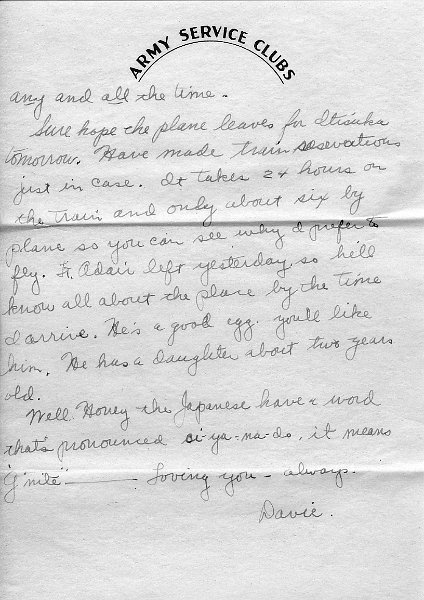 ARMY SERVICE CLUBS
any and all the time.
Sure hope the plane leaves for Itisuka
tomorrow. Have made train reservations
just in case. It takes 24 hours on
the train and only about six by
plane so you can see why I prefer to
fly. Adair left yesterday, so he'll
know all about the place by the time
I arrive. He's a good egg. you'll like
him. He has a daughter about two years
old.
Well Honey the Japanese have a word
that's pronounced -ya-na-do, it means
"G'nite" Loving you - always.
Davie.